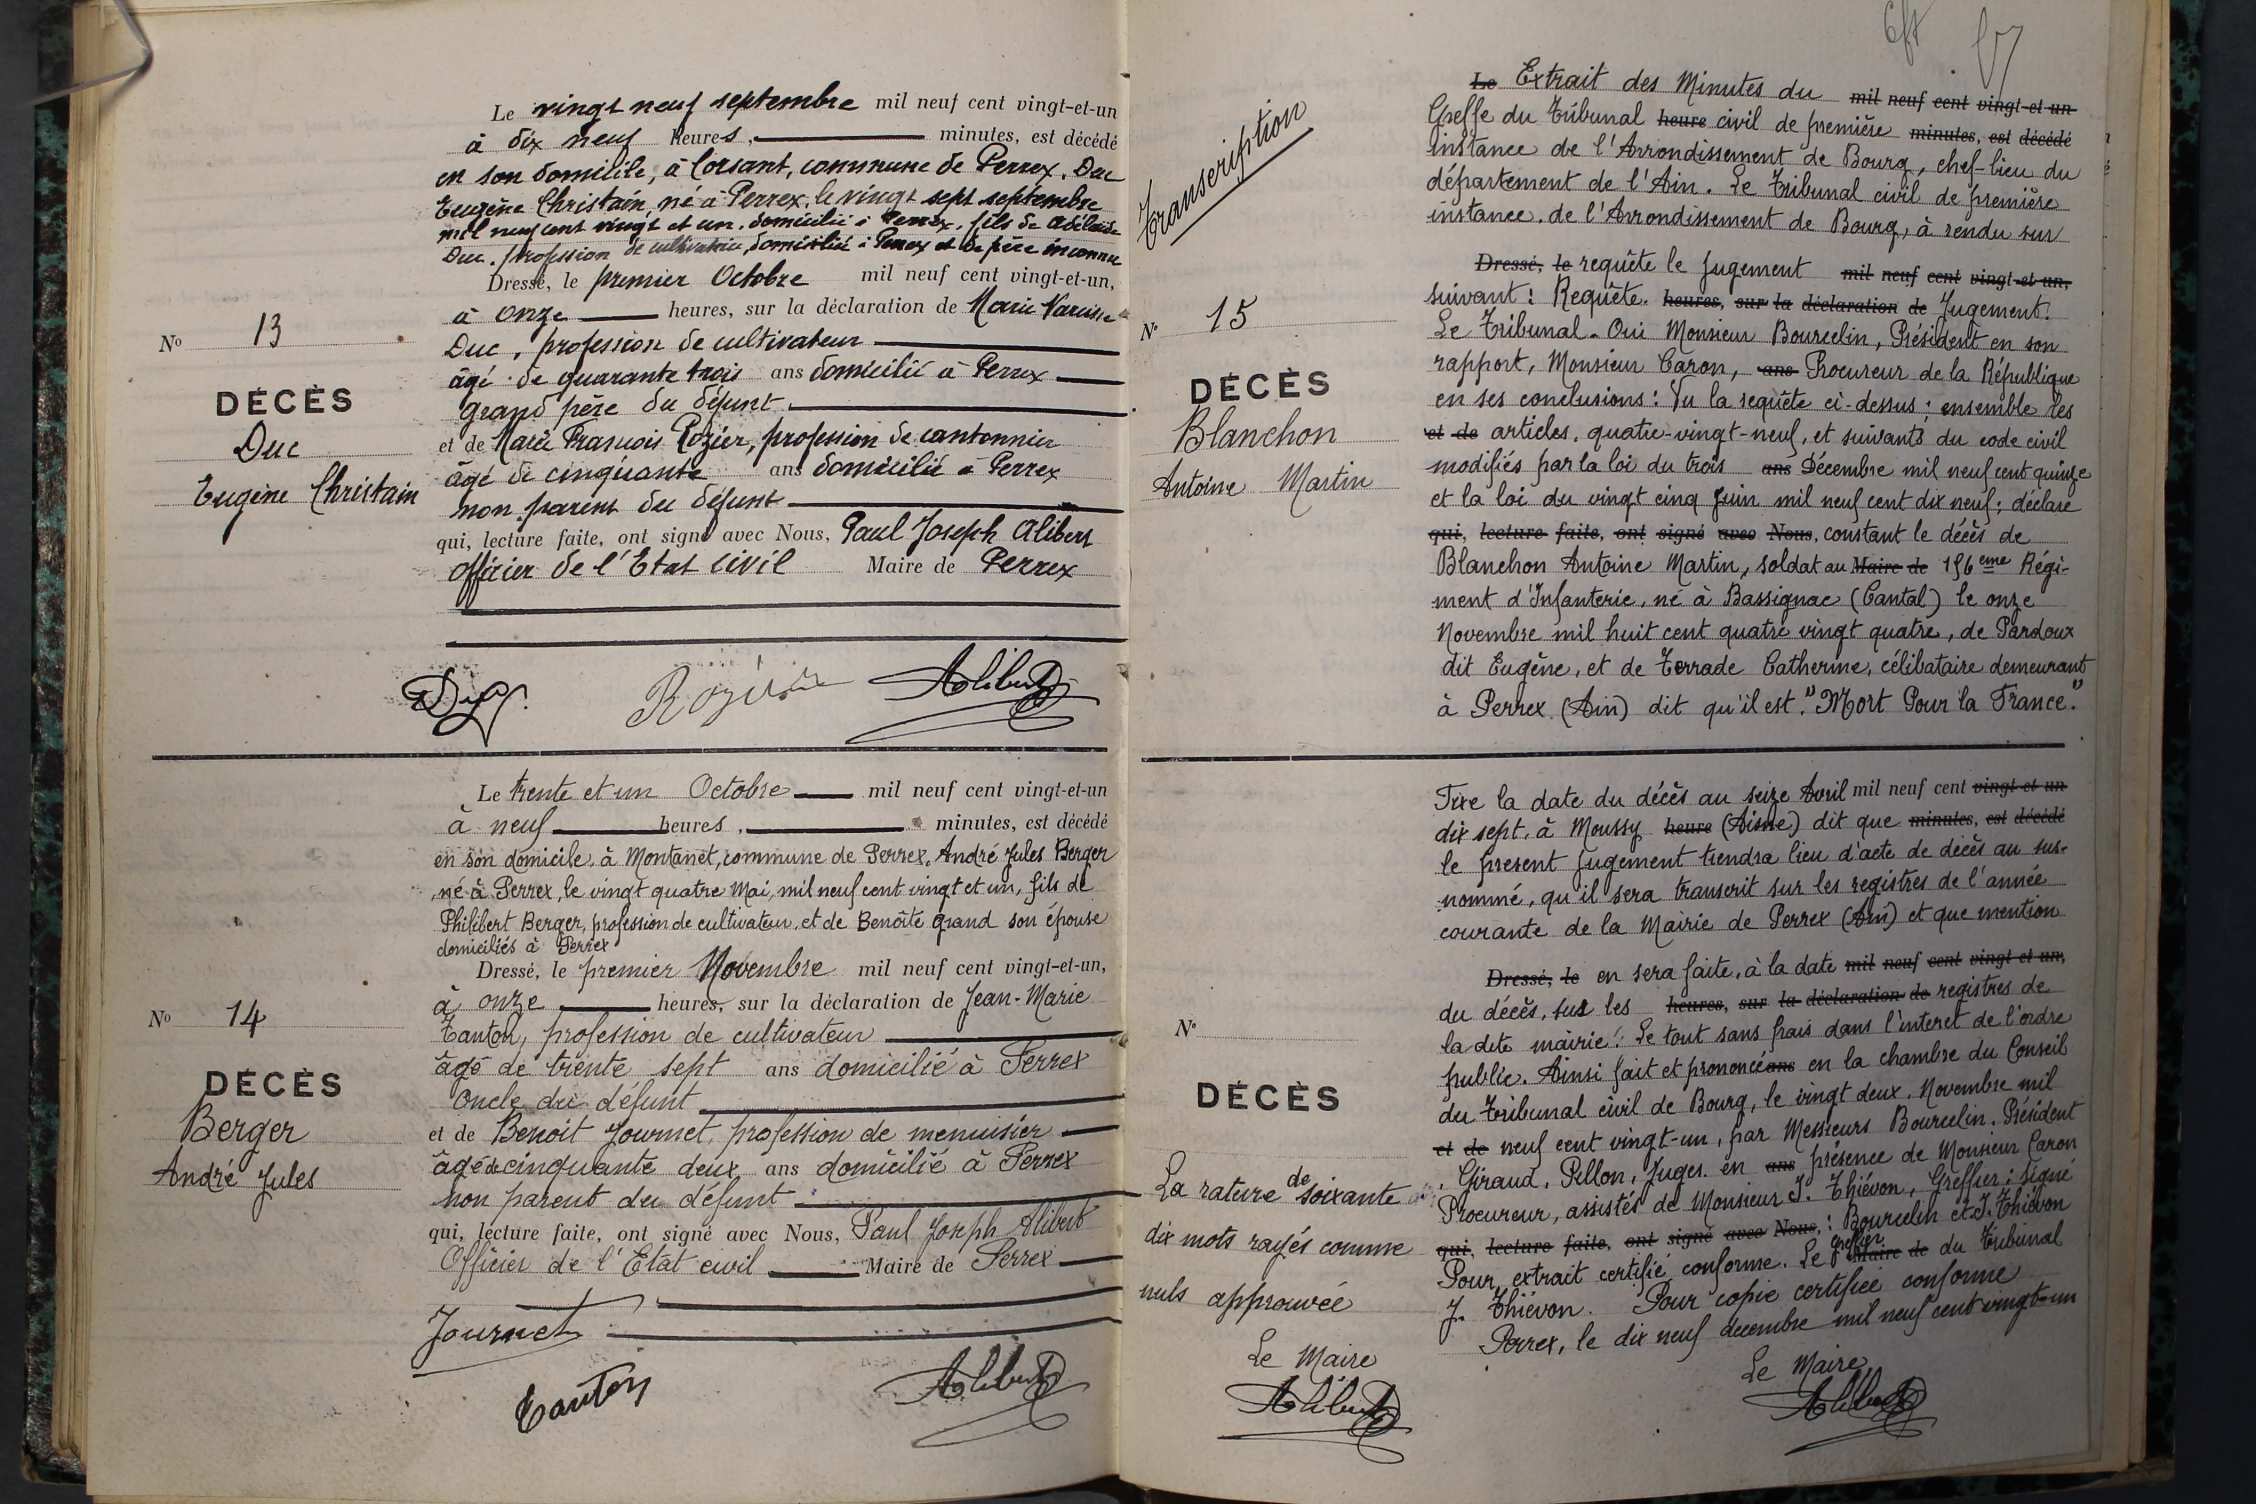 Le vingt neuf septembre mil neuf cent vingt-et-un
à dix neuf heures, minutes, est décédé
en son domicile, à Corsant, commune de Perrex, Duc
Eugène Christain, né à Perrex, le vingt sept septembre
mil neuf cent vingt et un, domicilié à Perrex, fils de Adélaïde
Duc, profession de cultivatrice, domiciliée à Perrex et de père inconnu
Dressé, le premier Octobre mil neuf cent vingt-et-un,
à onze heures, sur la déclaration de Marie Narcisse
Duc, profession de cultivateur
âgé de quarante trois ans domicilié à Perrex
grand père du défunt
et de Marie François Rozier, profession de cantonnier
âgé de cinquante ans domicilié à Perrex
non parent du défunt
qui, lecture faite, ont signé avec Nous, Paul Joseph Alibert
officier de l'Etat civil Maire de Perrex
No 13
DÉCÈS
Duc
Eugène Christain
Duc Rozier Alibert
Le trente et un Octobre mil neuf cent vingt-et-un
à neuf heures, minutes, est décédé
en son domicile, à Montanet, commune de Perrex, André Jules Berger
né à Perrex, le vingt quatre Mai, mil neuf cent vingt et un, fils de
Philibert Berger, profession de cultivateur, et de Benoîte Grand son épouse
domiciliés à Perrex
Dressé, le premier Novembre mil neuf cent vingt-et-un,
à onze heures, sur la déclaration de Jean-Marie
Tanton, profession de cultivateur
âgé de trente sept ans domicilié à Perrex
oncle du défunt
et de Benoit Journet, profession de menuisier
âgé de cinquante deux ans domicilié à Perrex
non parent du défunt
qui, lecture faite, ont signé avec Nous, Paul Joseph Alibert
Officier de l'Etat civil Maire de Perrex
No 14
DÉCÈS
Berger
André Jules
Journet
Tanton Alibert
Transcription
No 15
DÉCÈS
Blanchon
Antoine Martin
Le Extrait des Minutes du mil neuf cent vingt-et-un
Greffe du Tribunal heure civil de première minutes, est décédé
instance de l'Arrondissement de Bourg, chef-lieu du
département de l'Ain. Le Tribunal civil de première
instance de l'Arrondissement de Bourg, à rendu sur
Dressé, le requête le jugement mil neuf cent vingt-et-un,
suivant: Requête. heures, sur la déclaration de Jugement.
Le Tribunal. Oui Monsieur Bourcelin, Président en son
rapport, Monsieur Caron, ans Procureur de la République
en ses conclusions: Vu la requête ci-dessus; ensemble les
et de articles, quatre-vingt-neuf, et suivants du code civil
modifiés par la loi du trois ans Décembre mil neuf cent quinze
et la loi du vingt cinq Juin mil neuf cent dix neuf; déclare
qui, lecture faite, ont signé avec Nous, constant le décès de
Blanchon Antoine Martin, soldat au Maire de 156eme Régi-
ment d'Infanterie, né à Bassignac (Cantal) le onze
Novembre mil huit cent quatre vingt quatre, de Pardoux
dit Eugène, et de Terrade Catherine, célibataire demeurant
à Perrex (Ain) dit qu'il est "Mort Pour la France."
Fixe la date du décès au seize Avril mil neuf cent vingt et un
dix sept, à Moussy heure (Aisne) dit que minutes, est décédé
le present jugement tiendra lieu d'acte de décès au sus-
nommé, qu'il sera transcrit sur les registres de l'année
courante de la Mairie de Perrex (Ain) et que mention
Dressé, le en sera faite, à la date mil neuf cent vingt et un,
du décès, sur les heures, sur la déclaration de registres de
la dite mairie. Le tout sans frais dans l'interet de l'ordre
public. Ainsi fait et prononcé ans en la chambre du Conseil
du Tribunal civil de Bourg, le vingt deux Novembre mil
et de neuf cent vingt-un, par Messieurs Bourcelin, Président
, Giraud, Pillon, Juges. en ans présence de Monsieur Caron
Procureur, assistés de Monsieur J. Thiévon, Greffier; signé
qui, lecture faite, ont signé avec Nous,: Bourcelin et J. Thiévon
Pour extrait certifié conforme. Le Greffier Maire de du Tribunal
J. Thiévon. Pour copie certifiée conforme
Perrex, le dix neuf decembre mil neuf cent vingt-un
Le Maire
Alibert
No
DÉCÈS
La rature de soixante
dix mots rayés comme
nuls approuvée
Le Maire
Alibert